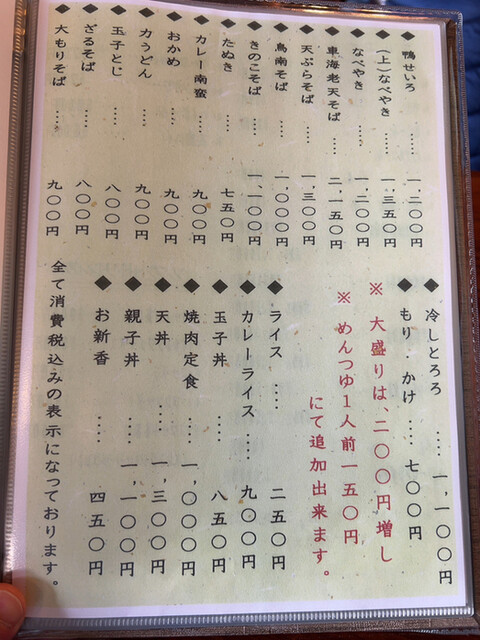 ◆鴨せいろ……一、二〇〇円
◆(上)なべやき……一、三五〇円
◆なべやき……一、二〇〇円
◆車海老天そば……二、一五〇円
◆天ぷらそば……一、三〇〇円
◆鳥南そば……一、〇〇〇円
◆きのこそば……一、一〇〇円
◆たぬき……七五〇円
◆カレー南蛮……九〇〇円
◆おかめ……九〇〇円
◆力うどん……九〇〇円
◆玉子とじ……八〇〇円
◆ざるそば……八〇〇円
◆大もりそば……九〇〇円
◆冷しとろろ……一、一〇〇円
◆もり かけ……七〇〇円
※大盛りは、二〇〇円増し
※めんつゆ1人前一五〇円
にて追加出来ます。
◆ライス……二五〇円
◆カレーライス……九〇〇円
◆玉子丼……八五〇円
◆焼肉定食……一、〇〇〇円
◆天丼……一、三〇〇円
◆親子丼……一、一〇〇円
◆お新香……四五〇円
全て消費税込みの表示になっております。